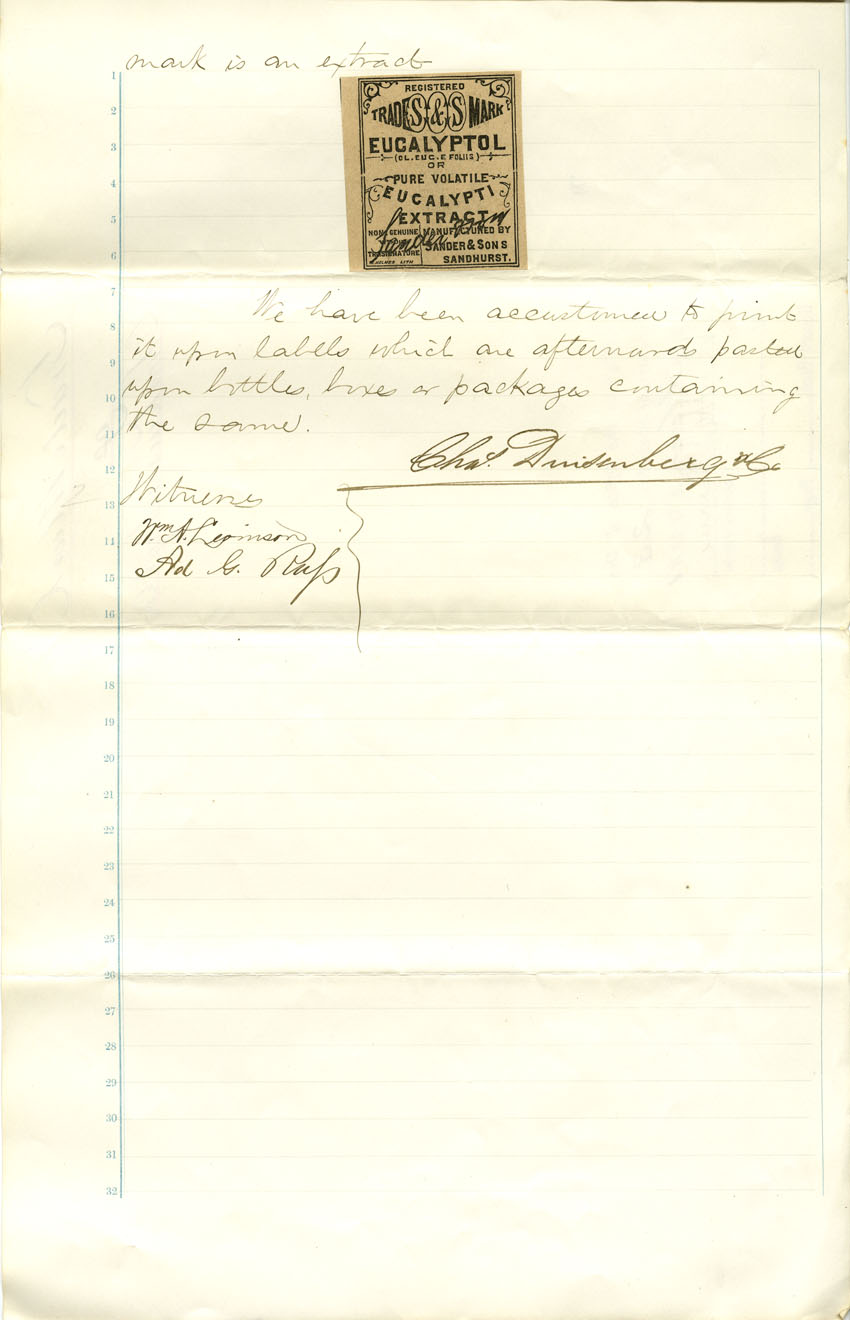 mark is an extract
REGISTERED
TRADE S&S MARK
EUCALYPTOL
(OL. EUC. E FOLIIS)
OR
PURE VOLATILE
EUCALYPTI
EXTRACT
NONE GENUINE MANUFACTURED BY
SIGNATURE SANDER & SONS
SANDHURST.
HOLMES LITH
We have been accustomed to print
it upon labels which are afterwards pasted
upon bottles, boxes or packages containing
the same.
Chas. Duisenberg & Co
Witness
Wm. A.
Ad G.
1
2
3
4
5
6
7
8
9
10
11
12
13
14
15
16
17
18
19
20
21
22
23
24
25
26
27
28
29
30
31
32